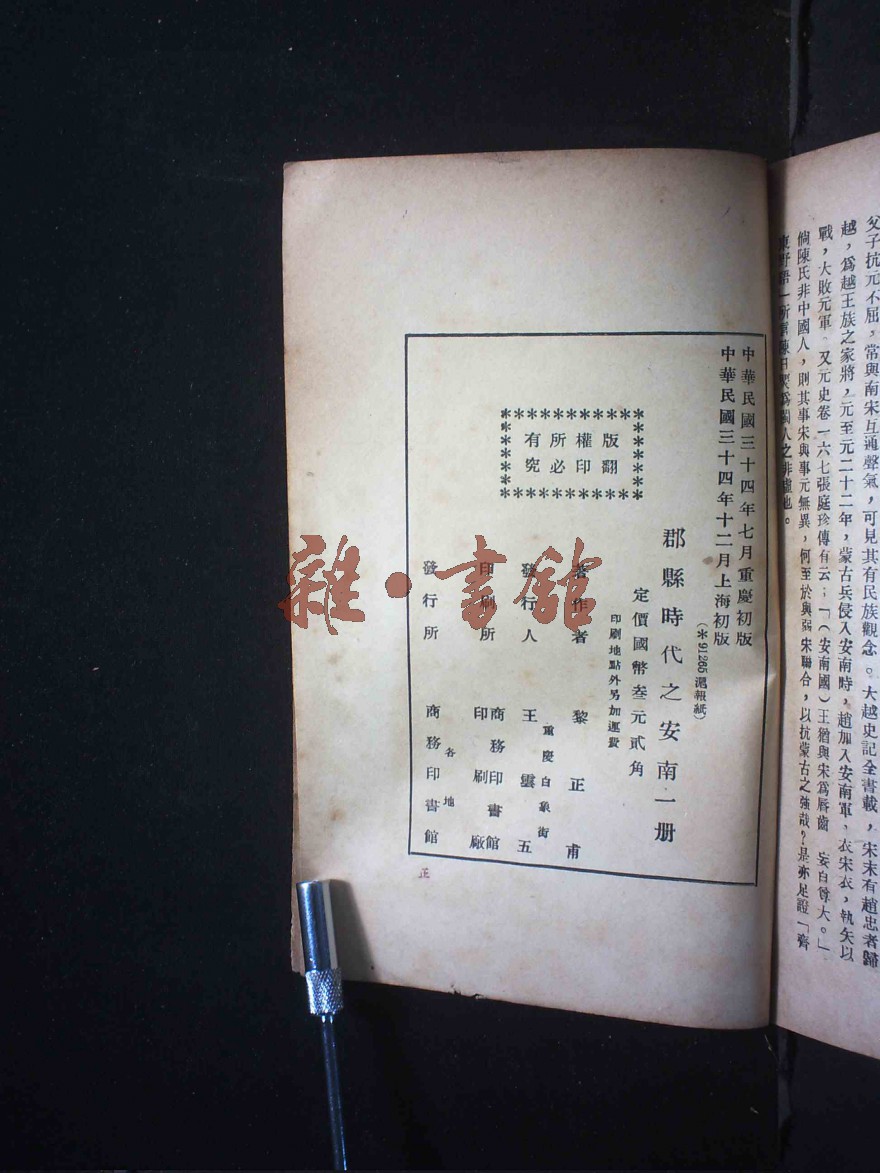 父子抗元不屈，常與南宋互通聲氣，可見其有民族觀念。大越史記全書載，宋末有趙忠者歸
越，爲越王族之家將，元至元二十二年，蒙古兵侵入安南時，趙加入安南軍，衣宋衣，執矢以
戰，大敗元軍。又元史卷一六七張庭珍傳有云；「（安南國）王猶與宋爲唇齒　妄自尊大。」
倘陳氏非中國人，則其事宋與事元無異，何至於與弱宋聯合，以抗蒙古之強哉？是亦足證「齊
東野語」所載陳日煚爲閩人之非虛也。
中華民國三十四年七月重慶初版
中華民國三十四年十二月上海初版
（＊91265滬報紙）
郡縣時代之安南一册
定價國幣叁元貳角
印刷地點外另加運費
版權所有
翻印必究
著作者　黎正甫
重慶白象街
發行人　王雲五
印刷所　商務印書館
印刷廠
發行所　各地
商務印書館
正
雜·書館